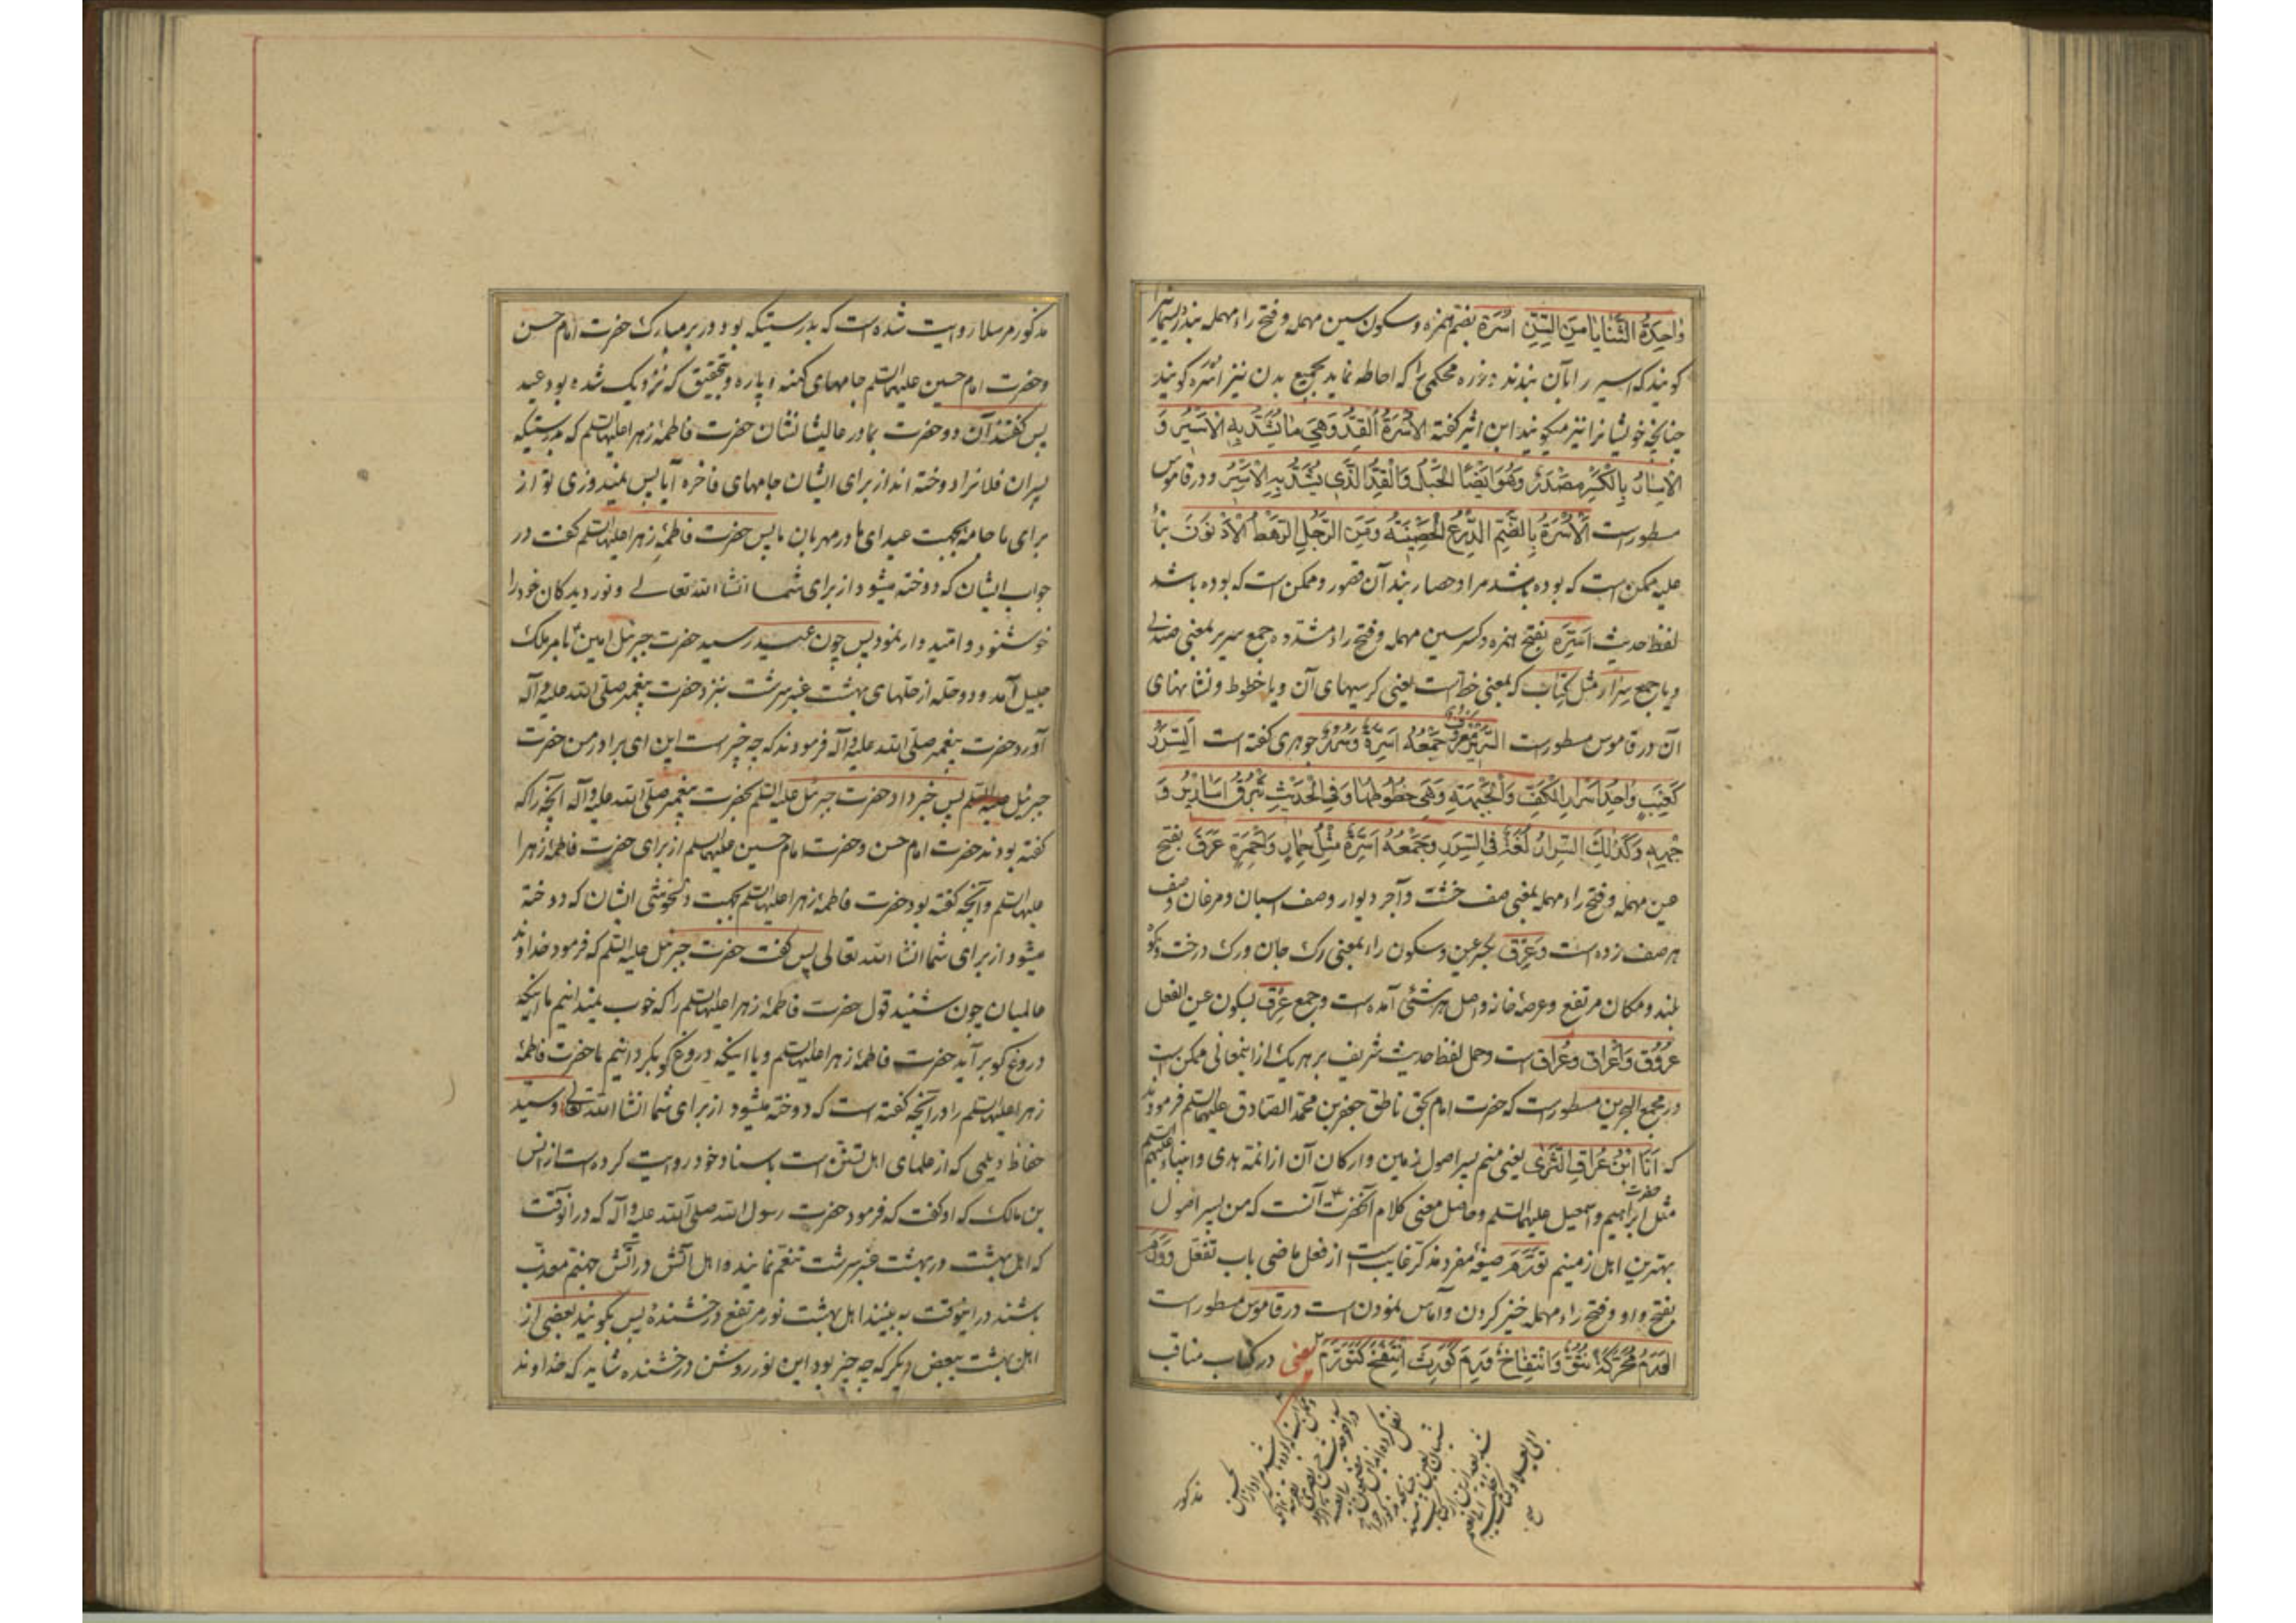 واحِدَةُ الثَّنایا مِنَ السِّنِّ اُسْرَة بضم همزه و سکون سین مهمله و فتح راء مهمله بند و ریسمانیرا
کویند که اسیر را بآن بندند و زره محکمی را که احاطه نماید بجمیع بدن نیز اُسْره کویند
چنانچه خویشانرا نیز میکویند ابن اثیر کفته الاُسْرَةُ القِدُّ وَهِیَ ما یُشَدُّ بِهِ الاَسیرُ وَ
الاِسارُ بِالکَسْرِ مَصْدَرٌ وَهُوَ اَیْضًا الحَبْلُ وَالْقِدُّ الَّذی یُشَدُّ بِهِ الاَسیرُ و در قاموس
مسطور است الاُسْرَةُ بِالضَّمِّ الدِّرْعُ الحَصینَةُ وَمِنَ الرَّجُلِ الرَّهْطُ الاَدْنَوْنَ بنا
علیه ممکن است که بوده باشد مراد حصار بند آن قصور و ممکن است که بوده باشد
لفظ حدیث اَسِرَّة بفتح همزه و کسر سین مهمله و فتح راء مشدده جمع سریر بمعنی صندلی
و یا جمع سِرار مثل کِتاب که بمعنی خط است یعنی کرسیهای آن و یا خطوط و نشانهای
آن در قاموس مسطور است السَّریرُ مَعْرُوفٌ جَمْعُهُ اَسِرَّةٌ وَسُرُرٌ جوهری کفته است السِّرَرُ
کَعِنَبٍ واحِدُ اَسْرارِ الکَفِّ وَالْجَبْهَةِ وَهِیَ خُطُوطُها وَفِی الْحَدیثِ تَبْرُقُ اَساریرُ وَ
جْهِهِ وَکَذلِکَ السِّرارُ لُغَةٌ فِی السِّرَرِ وَجَمْعُهُ اَسِرَّةٌ مِثْلُ حِمارٍ وَاَحْمِرَةٍ عَرَق بفتح
عین مهمله و فتح راء مهمله بمعنی صف خشت و آجر دیوار و صف اسبان و مرغان و صف
هر صف زده است و عِرْق بکسر عین و سکون راء بمعنی رک جان و رک درخت و کوه
بلند و مکان مرتفع و عرصهٔ خانه و اصل هر شئی آمده است و جمع عِرْق بسکون عین الفعل
عُرُوق وَاَعْراق وعُراق است و حمل لفظ حدیث شریف بر هر یک از اینمعانی ممکن است
در مجمع البحرین مسطور است که حضرت امام بحق ناطق جعفر بن محمد الصادق علیهما السلم فرمودند
که اَنَا ابْنُ عُراقِ الثَّری یعنی منم پسر اصول زمین و ارکان آن از ائمه هدی و انبیاء علیهم السلم
مثل حضرت ابراهیم و اسمعیل علیهما السلم و حاصل معنی کلام آنحضرت آنست که من پسر اصول
بهترین اهل زمینیم تَوَرَّمَ صیغهٔ مفرد مذکر غایب است از فعل ماضی باب تفعل وَوَرَم
بفتح واو و فتح راء مهمله خیز کردن و آماس نمودن است در قاموس مسطور است
الوَرَمُ مُحَرَّکَةً نُتُوٌّ وَانْتِفاخٌ وَرِمَ کَوَرِثَ اِنْتَفَخَ کَتَوَرَّمَ یعنی در کتاب مناقب
مذکور
مذکور مرسلا روایت شده است که بدرستیکه بود در بر مبارک حضرت امام حسن
و حضرت امام حسین علیهما السلم جامهای کهنه و پاره و بتحقیق که نزدیک شده بود عید
پس کفتند آن دو حضرت بمادر عالیشانشان حضرت فاطمهٔ زهرا علیها السلم که بدرستیکه
پسران فلانرا دوخته اند از برای ایشان جامهای فاخره آیا پس نمیدوزی تو از
برای ما جامه بجهت عید ای مادر مهربان ما پس حضرت فاطمهٔ زهرا علیها السلم کفت در
جواب ایشان که دوخته میشود از برای شما انشا الله تعالی و نور دیدکان خود را
خوشنود و امیدوار نمود پس چون عید رسید حضرت جبرئیل امین بامر ملک
جلیل آمد و دو حله از حلهای بهشت عنبر سرشت بنزد حضرت پیغمبر صلی الله علیه و آله
آورد حضرت پیغمبر صلی الله علیه و آله فرمودند که چه چیز است این ای برادر من حضرت
جبرئیل علیه السلم پس خبر داد حضرت جبرئیل علیه السلم بحضرت پیغمبر صلی الله علیه و آله آنچه را که
کفته بودند حضرت امام حسن و حضرت امام حسین علیهما السلم از برای حضرت فاطمهٔ زهرا
علیها السلم و آنچه کفته بود حضرت فاطمهٔ زهرا علیها السلم بجهت دلخوشی ایشان که دوخته
میشود از برای شما انشا الله تعالی پس کفت حضرت جبرئیل علیه السلم که فرمود خداوند
عالمیان چون شنید قول حضرت فاطمهٔ زهرا علیها السلم را که خوب نمیدانیم ما اینکه
دروغ کو بر آید حضرت فاطمهٔ زهرا علیها السلم و یا اینکه دروغ کو بکردانیم ما حضرت فاطمهٔ
زهرا علیها السلم را در آنچه کفته است که دوخته میشود از برای شما انشا الله تعالی و سید
حفاظ دیلمی که از علمای اهل تسنن است باسناد خود روایت کرده است از انس
بن مالک که او کفت که فرمود حضرت رسول الله صلی الله علیه و آله که در آنوقت
که اهل بهشت در بهشت عنبر سرشت تنعم نمایند و اهل آتش در آتش جهنم معذب
باشند در اینوقت به بینند اهل بهشت نور مرتفع درخشندهٔ پس بکویند بعضی از
اهل بهشت ببعض دیکر که چه چیز بود این نور روشن درخشنده شاید که خداوند